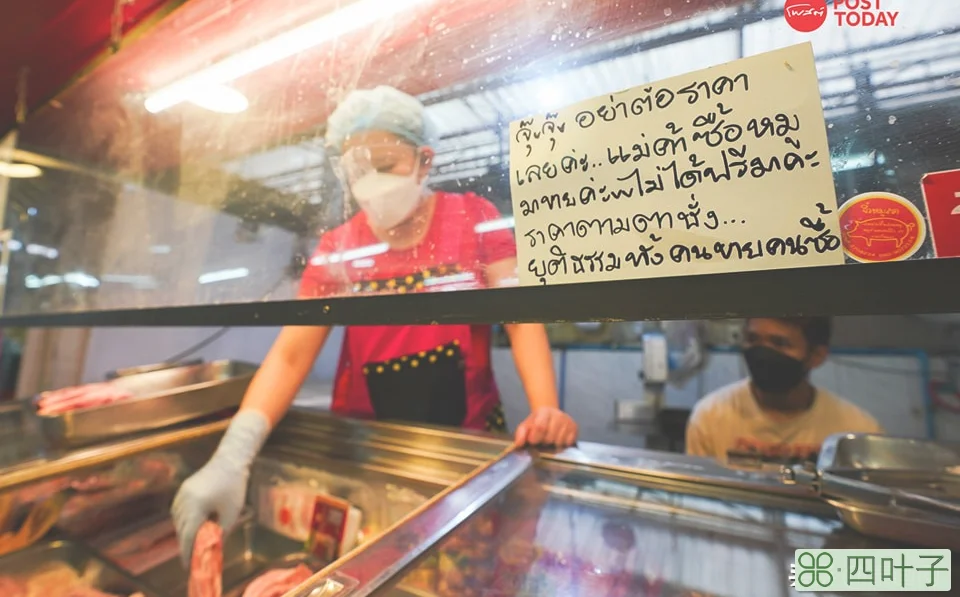 โพสต์
POST
TODAY
จุ๊ะจุ๊ะ อย่าต่อราคา
เลยค่ะ..แม่ค้าซื้อหมู
มาขายค่ะ ไม่ได้ฟรีมาค่ะ
ราคาตามตาชั่ง...
ยุติธรรมทั้งคนขายคนซื้อ
四叶子